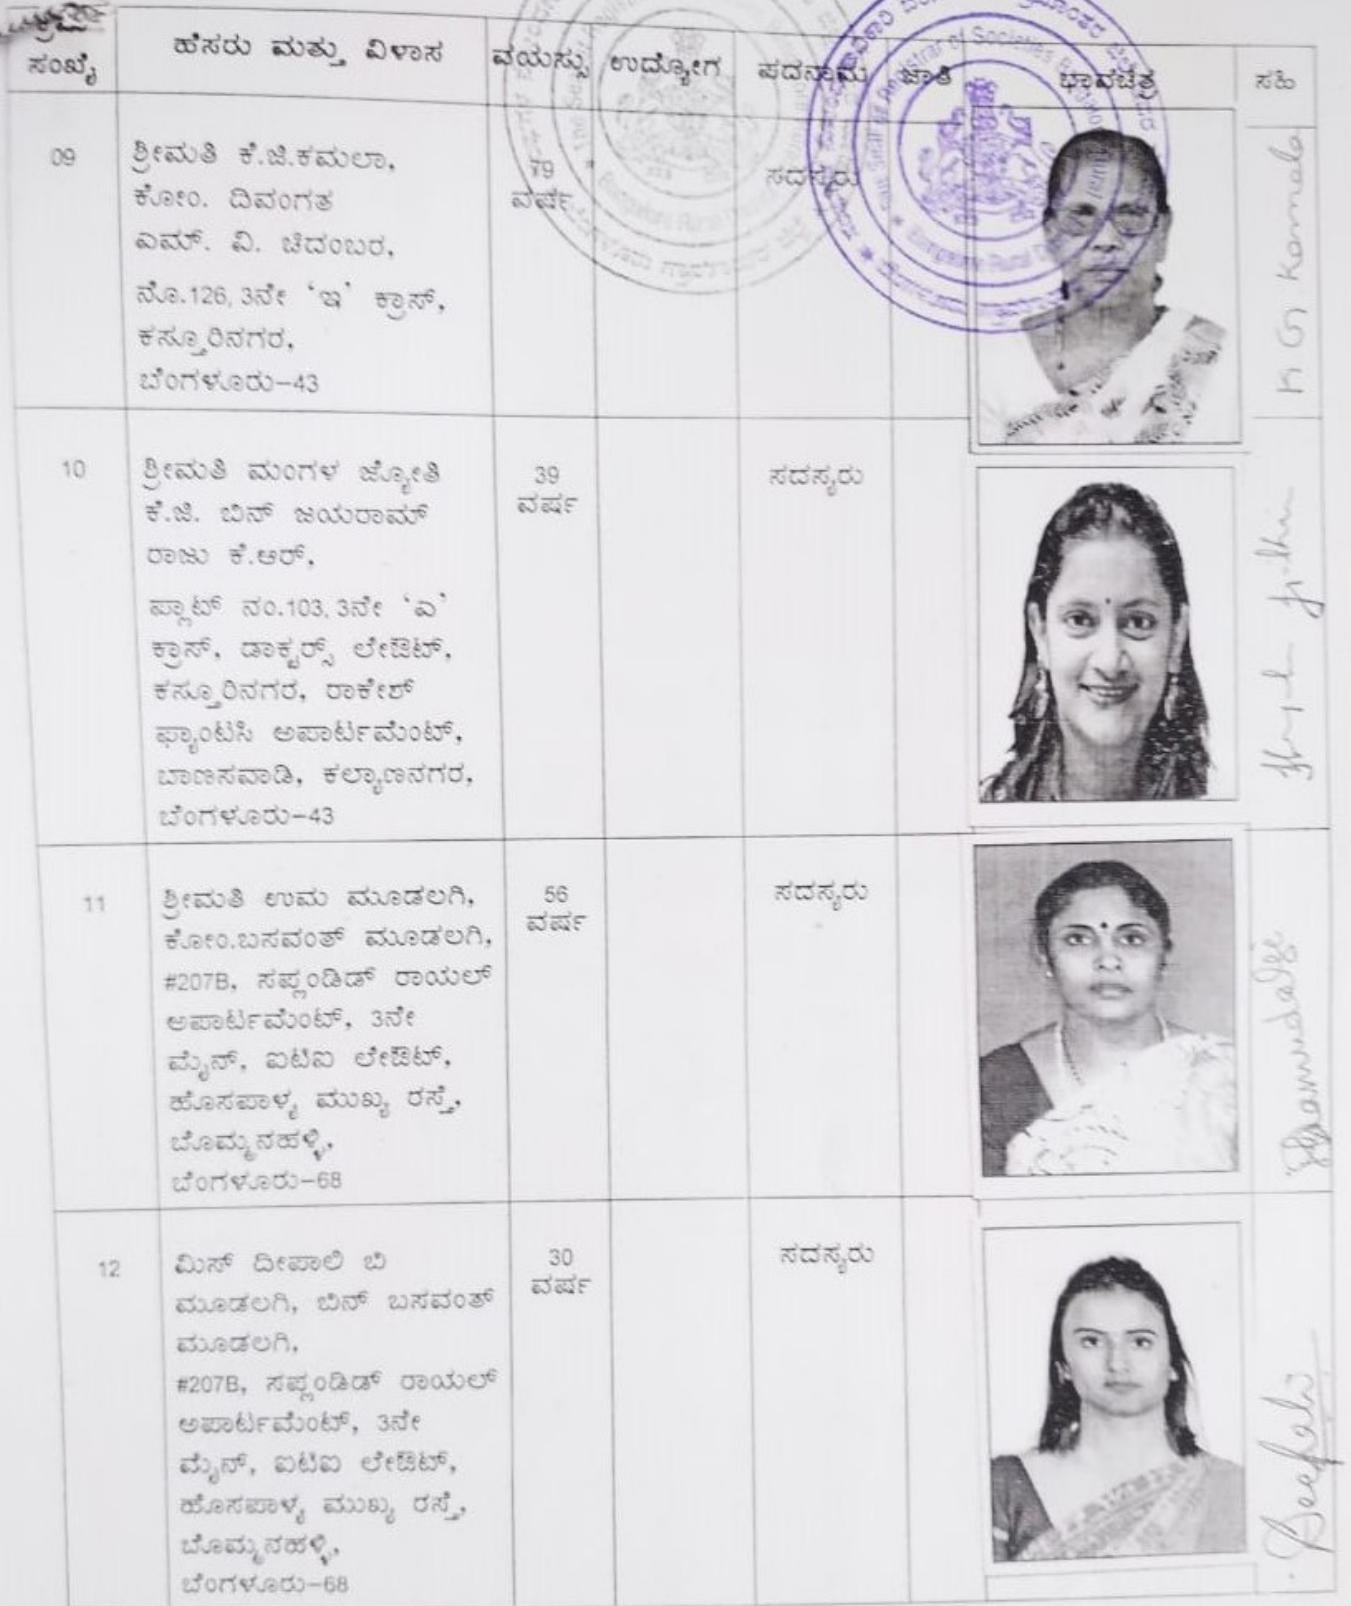 ಕ್ರಮ
ಸಂಖ್ಯೆ
ಹೆಸರು ಮತ್ತು ವಿಳಾಸ
ವಯಸ್ಸು
ಉದ್ಯೋಗ
ಪದನಾಮ
ಜಾತಿ
ಭಾವಚಿತ್ರ
ಸಹಿ
09
ಶ್ರೀಮತಿ ಕೆ.ಜಿ.ಕಮಲಾ,
ಕೋಂ. ದಿವಂಗತ
ಎಮ್. ವಿ. ಚಿದಂಬರ,
ನೊ.126, 3ನೇ ‘ಇ’ ಕ್ರಾಸ್,
ಕಸ್ತೂರಿನಗರ,
ಬೆಂಗಳೂರು-43
79
ವರ್ಷ
ಸದಸ್ಯರು
K G Kamala
10
ಶ್ರೀಮತಿ ಮಂಗಳ ಜ್ಯೋತಿ
ಕೆ.ಜಿ. ಬಿನ್ ಜಯರಾಮ್
ರಾಜು ಕೆ.ಆರ್,
ಪ್ಲಾಟ್ ನಂ.103, 3ನೇ ‘ಎ’
ಕ್ರಾಸ್, ಡಾಕ್ಟರ್ಸ್ ಲೇಔಟ್,
ಕಸ್ತೂರಿನಗರ, ರಾಕೇಶ್
ಫ್ಯಾಂಟಸಿ ಅಪಾರ್ಟಮೆಂಟ್,
ಬಾಣಸವಾಡಿ, ಕಲ್ಯಾಣನಗರ,
ಬೆಂಗಳೂರು-43
39
ವರ್ಷ
ಸದಸ್ಯರು
11
ಶ್ರೀಮತಿ ಉಮ ಮೂಡಲಗಿ,
ಕೋಂ.ಬಸವಂತ್ ಮೂಡಲಗಿ,
#207B, ಸಪ್ಲಂಡಿಡ್ ರಾಯಲ್
ಅಪಾರ್ಟಮೆಂಟ್, 3ನೇ
ಮೈನ್, ಐಟಿಐ ಲೇಔಟ್,
ಹೊಸಪಾಳ್ಯ ಮುಖ್ಯ ರಸ್ತೆ,
ಬೊಮ್ಮನಹಳ್ಳಿ,
ಬೆಂಗಳೂರು-68
56
ವರ್ಷ
ಸದಸ್ಯರು
12
ಮಿಸ್ ದೀಪಾಲಿ ಬಿ
ಮೂಡಲಗಿ, ಬಿನ್ ಬಸವಂತ್
ಮೂಡಲಗಿ,
#207B, ಸಪ್ಲಂಡಿಡ್ ರಾಯಲ್
ಅಪಾರ್ಟಮೆಂಟ್, 3ನೇ
ಮೈನ್, ಐಟಿಐ ಲೇಔಟ್,
ಹೊಸಪಾಳ್ಯ ಮುಖ್ಯ ರಸ್ತೆ,
ಬೊಮ್ಮನಹಳ್ಳಿ,
ಬೆಂಗಳೂರು-68
30
ವರ್ಷ
ಸದಸ್ಯರು
Deepali